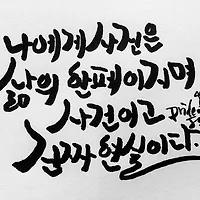 나에게 사진은
삶의 한 페이지며
사건이고
진짜 현실이다.